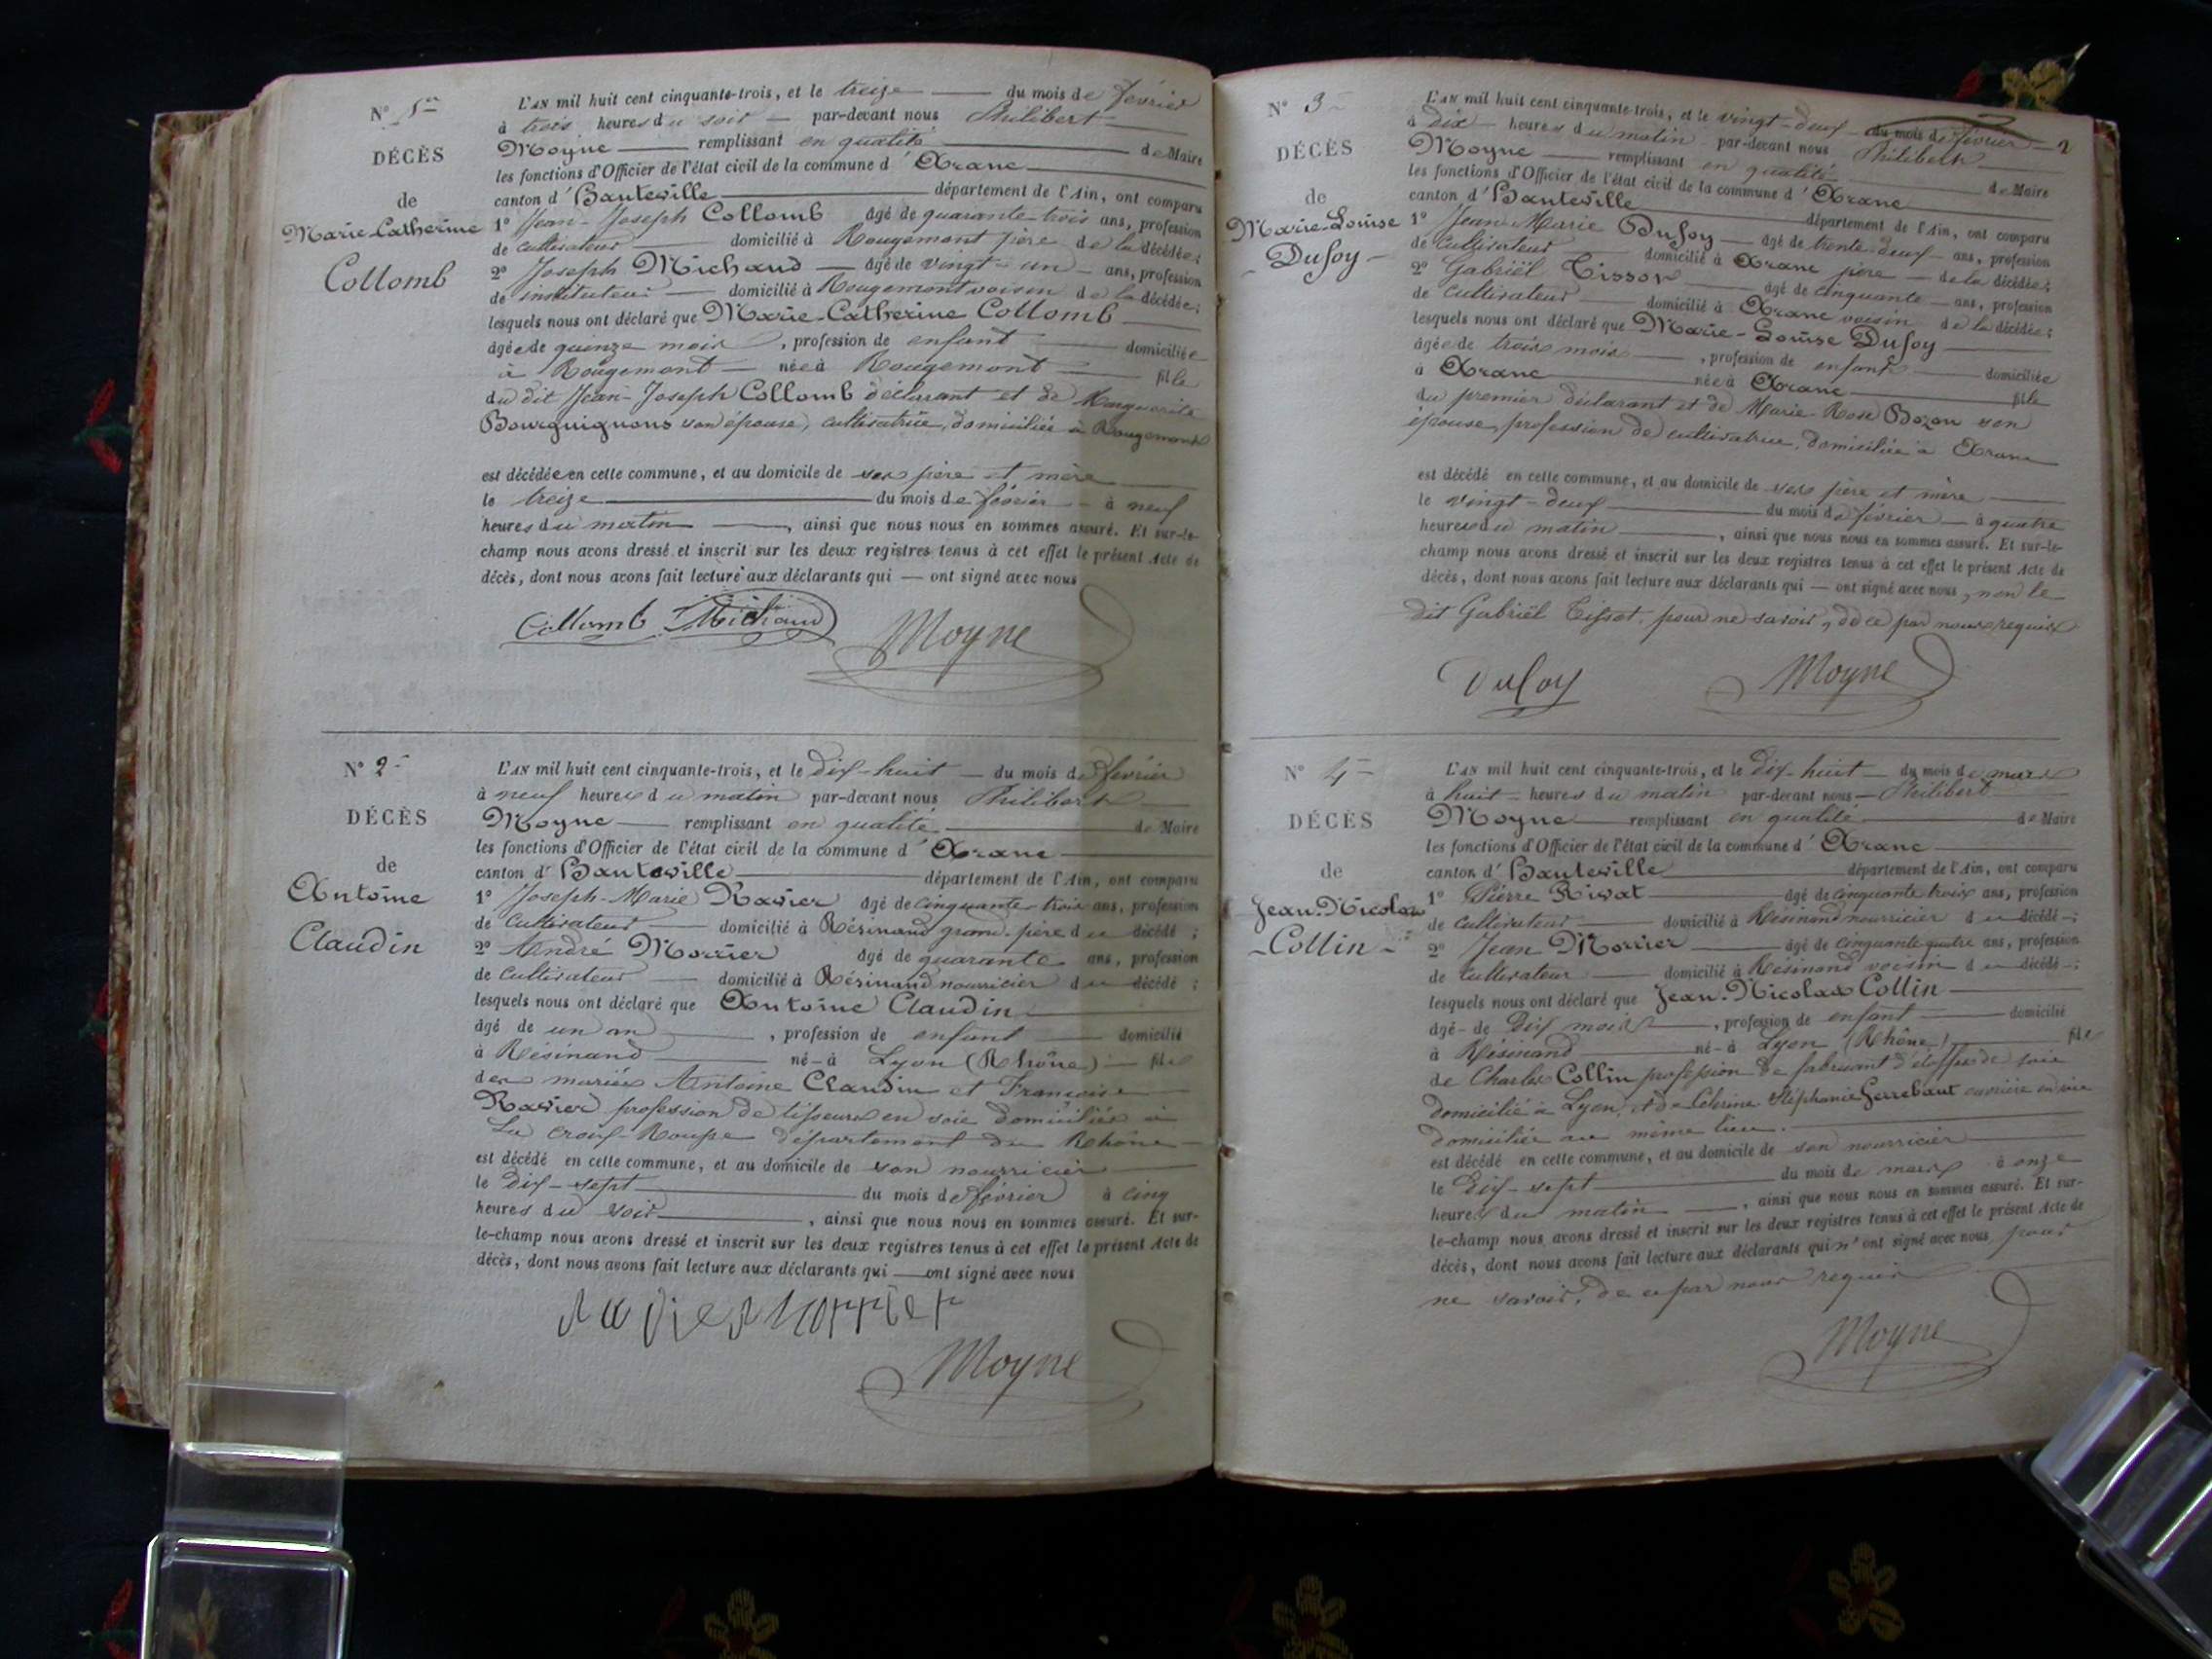 N° 1er
DÉCÈS
de
Marie-Catherine
Collomb
L'AN mil huit cent cinquante-trois, et le treize du mois de février
à trois heures du soir par-devant nous Philibert
Moyne remplissant en qualité de Maire
les fonctions d'Officier de l'état civil de la commune d' Aranc
canton d' Hauteville département de l'Ain, ont comparu
1° Jean-Joseph Collomb âgé de quarante-trois ans, profession
de cultivateur domicilié à Rougemont père de la décédée;
2° Joseph Michaud âgé de vingt-un ans, profession
de instituteur domicilié à Rougemont voisin de la décédée;
lesquels nous ont déclaré que Marie-Catherine Collomb
âgée de quinze mois, profession de enfant domiciliée
à Rougemont née à Rougemont fille
du dit Jean-Joseph Collomb déclarant et de Marguerite
Bourguignons son épouse, cultivatrice, domiciliée à Rougemont
est décédée en cette commune, et au domicile de ses père et mère
le treize du mois de février à neuf
heures du matin, ainsi que nous nous en sommes assuré. Et sur-le-
champ nous avons dressé et inscrit sur les deux registres tenus à cet effet le présent Acte de
décès, dont nous avons fait lecture aux déclarants qui — ont signé avec nous
Collomb Michaud Moyne
N° 2
DÉCÈS
de
Antoine
Claudin
L'AN mil huit cent cinquante-trois, et le dix-huit du mois de février
à neuf heures du matin par-devant nous Philibert
Moyne remplissant en qualité de Maire
les fonctions d'Officier de l'état civil de la commune d' Aranc
canton d' Hauteville département de l'Ain, ont comparu
1° Joseph-Marie Ravier âgé de cinquante-trois ans, profession
de cultivateur domicilié à Résinand grand-père du décédé;
2° André Morrier âgé de quarante ans, profession
de cultivateur domicilié à Résinand nourricier du décédé;
lesquels nous ont déclaré que Antoine Claudin
âgé de un an, profession de enfant domicilié
à Résinand né à Lyon (Rhône) fils
des mariés Antoine Claudin et Françoise
Ravier profession de tisseurs en soie domiciliés à
La Croix-Rousse département du Rhône
est décédé en cette commune, et au domicile de son nourricier
le dix-sept du mois de février à cinq
heures du soir, ainsi que nous nous en sommes assuré. Et sur-
le-champ nous avons dressé et inscrit sur les deux registres tenus à cet effet le présent Acte de
décès, dont nous avons fait lecture aux déclarants qui — ont signé avec nous
Ravier Morrier
Moyne
2
N° 3
DÉCÈS
de
Marie-Louise
Dufoy
L'AN mil huit cent cinquante-trois, et le vingt-deux du mois de février
à dix heures du matin par-devant nous Philibert
Moyne remplissant en qualité de Maire
les fonctions d'Officier de l'état civil de la commune d' Aranc
canton d' Hauteville département de l'Ain, ont comparu
1° Jean-Marie Dufoy âgé de trente-deux ans, profession
de cultivateur domicilié à Aranc père de la décédée;
2° Gabriël Tissot âgé de cinquante ans, profession
de cultivateur domicilié à Aranc voisin de la décédée;
lesquels nous ont déclaré que Marie-Louise Dufoy
âgée de trois mois, profession de enfant domiciliée
à Aranc née à Aranc fille
du premier déclarant et de Marie-Rose Bozon son
épouse, profession de cultivatrice, domiciliée à Aranc
est décédé en cette commune, et au domicile de ses père et mère
le vingt-deux du mois de février à quatre
heures du matin, ainsi que nous nous en sommes assuré. Et sur-le-
champ nous avons dressé et inscrit sur les deux registres tenus à cet effet le présent Acte de
décès, dont nous avons fait lecture aux déclarants qui — ont signé avec nous, non le
dit Gabriël Tissot, pour ne savoir, de ce par nous requis
Dufoy Moyne
N° 4
DÉCÈS
de
Jean-Nicolas
Collin
L'AN mil huit cent cinquante-trois, et le dix-huit du mois de mars
à huit heures du matin par-devant nous Philibert
Moyne remplissant en qualité de Maire
les fonctions d'Officier de l'état civil de la commune d' Aranc
canton d' Hauteville département de l'Ain, ont comparu
1° Pierre Rivat âgé de cinquante-trois ans, profession
de cultivateur domicilié à Résinand nourricier du décédé;
2° Jean Morrier âgé de cinquante-quatre ans, profession
de cultivateur domicilié à Résinand voisin du décédé;
lesquels nous ont déclaré que Jean-Nicolas Collin
âgé de dix mois, profession de enfant domicilié
à Résinand né à Lyon (Rhône) fils
de Charles Collin profession de fabricant d'étoffes de soie
domicilié à Lyon, et de Stéphanie Gerrebaut ouvrière en soie
domiciliée au même lieu.
est décédé en cette commune, et au domicile de son nourricier
le dix-sept du mois de mars à onze
heures du matin, ainsi que nous nous en sommes assuré. Et sur-
le-champ nous avons dressé et inscrit sur les deux registres tenus à cet effet le présent Acte de
décès, dont nous avons fait lecture aux déclarants qui n'ont signé avec nous pour
ne savoir, de ce par nous requis
Moyne